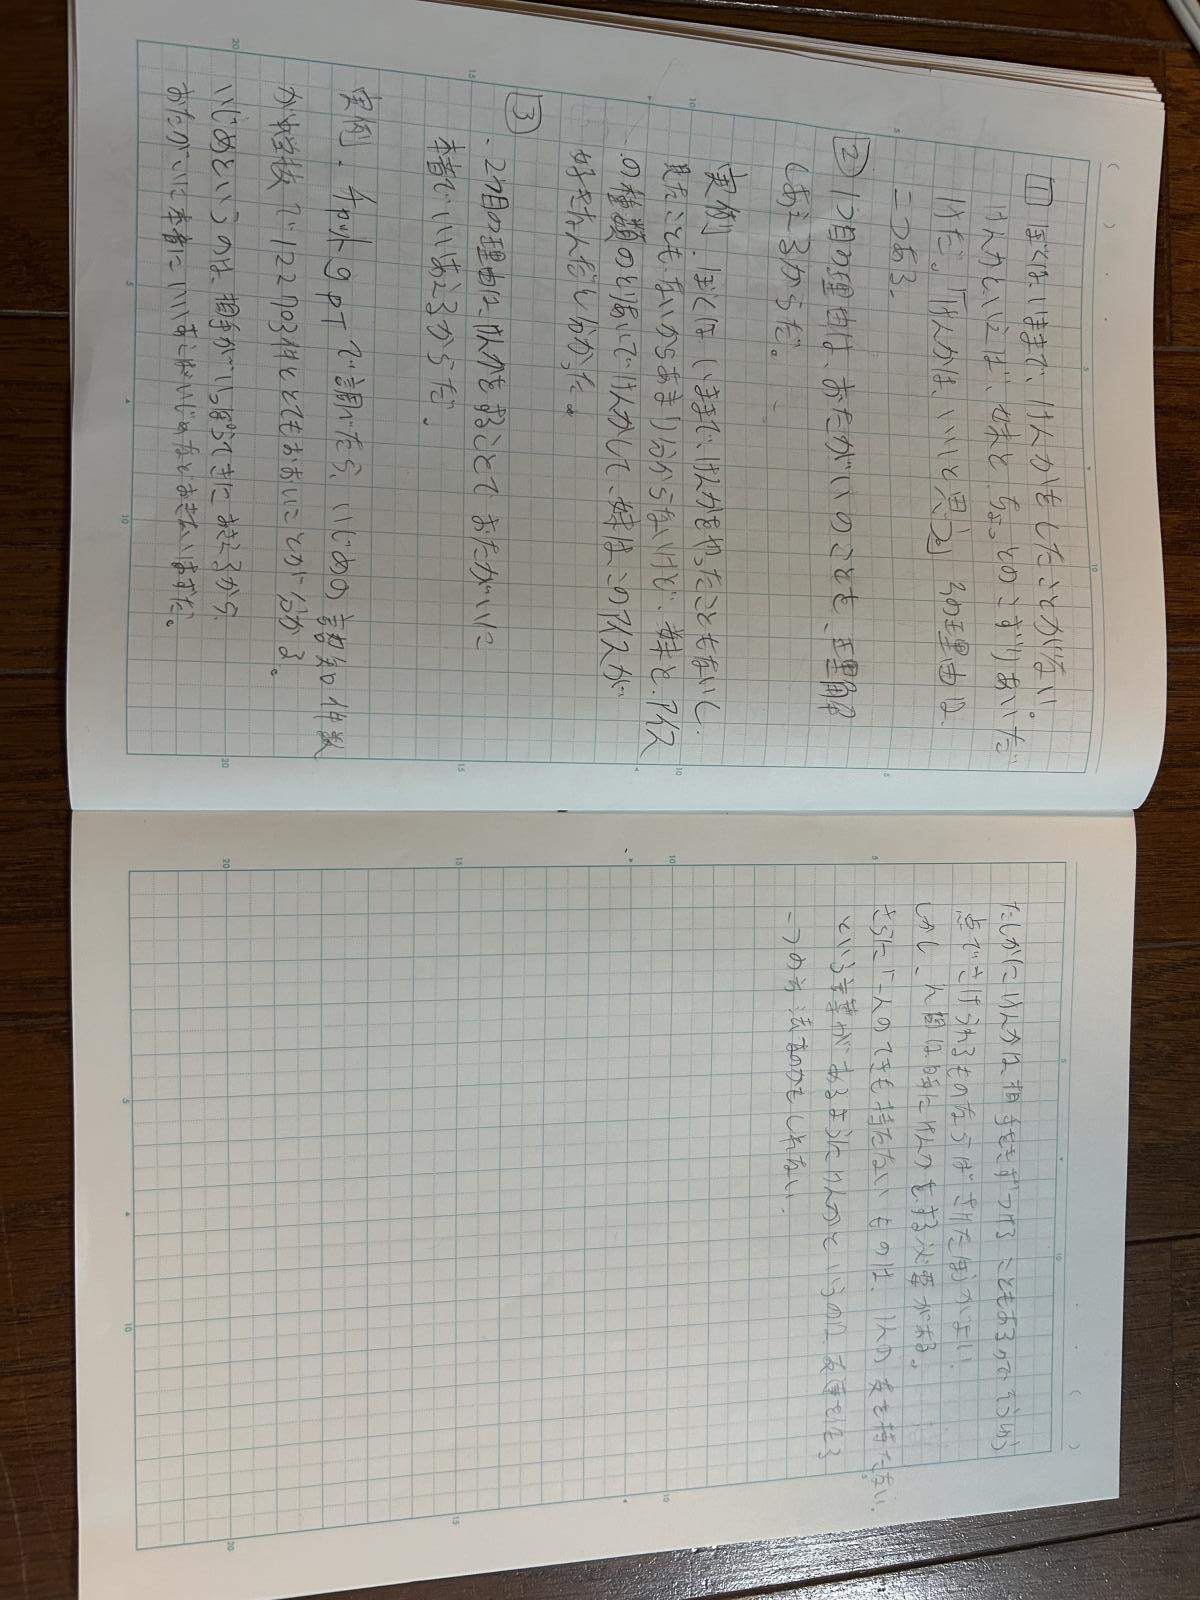 1 ぼくはいままで、けんかをしたことがない。
けんかといえば、妹と、ちょっとのこぜりあいだ
けだ。「けんかは、いいと思う」その理由は
二つある、
2 1つ目の理由は、おたがいのことを、理解
しあえるからだ。
実例、ぼくは、いままで、けんかをやったこともないし、
見たこともないからあまり分からないけど、妹と、アイス
の種類のとりあいでけんかして、妹はこのアイスが
好きなんだと分かった。
3
・2つ目の理由は、けんかをすることでおたがいに
本音でいいあえるからだ。
実例、チャットgptで調べたら、いじめの認知件数
が小学校で
いじめというのは、相手がいっぽうてきにおそえるから
おたがいに本音にいいあしないいじめなどおきないはずだ。
たしかにけんかは相手をきずつけることもあるのでその
点でさけられるものならばさけた方がよい、
しかし、人間は時にけんかをする必要がある。
さらに「一人のてきも持たないものは、一人の友も持たない、
という言葉があるようにけんかというのは、友達をもつ
一つの方法なのかもしれない、